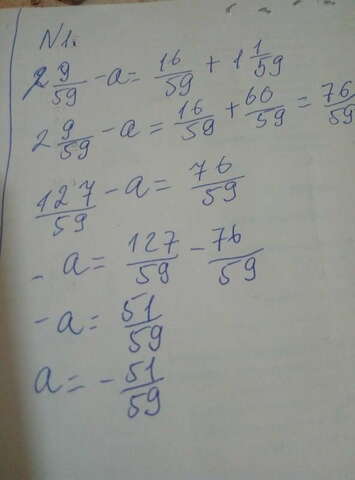 N1.
2 9/59 - a = 16/59 + 1 1/59
2 9/59 - a = 16/59 + 60/59 = 76/59
127/59 - a = 76/59
- a = 127/59 - 76/59
- a = 51/59
a = - 51/59